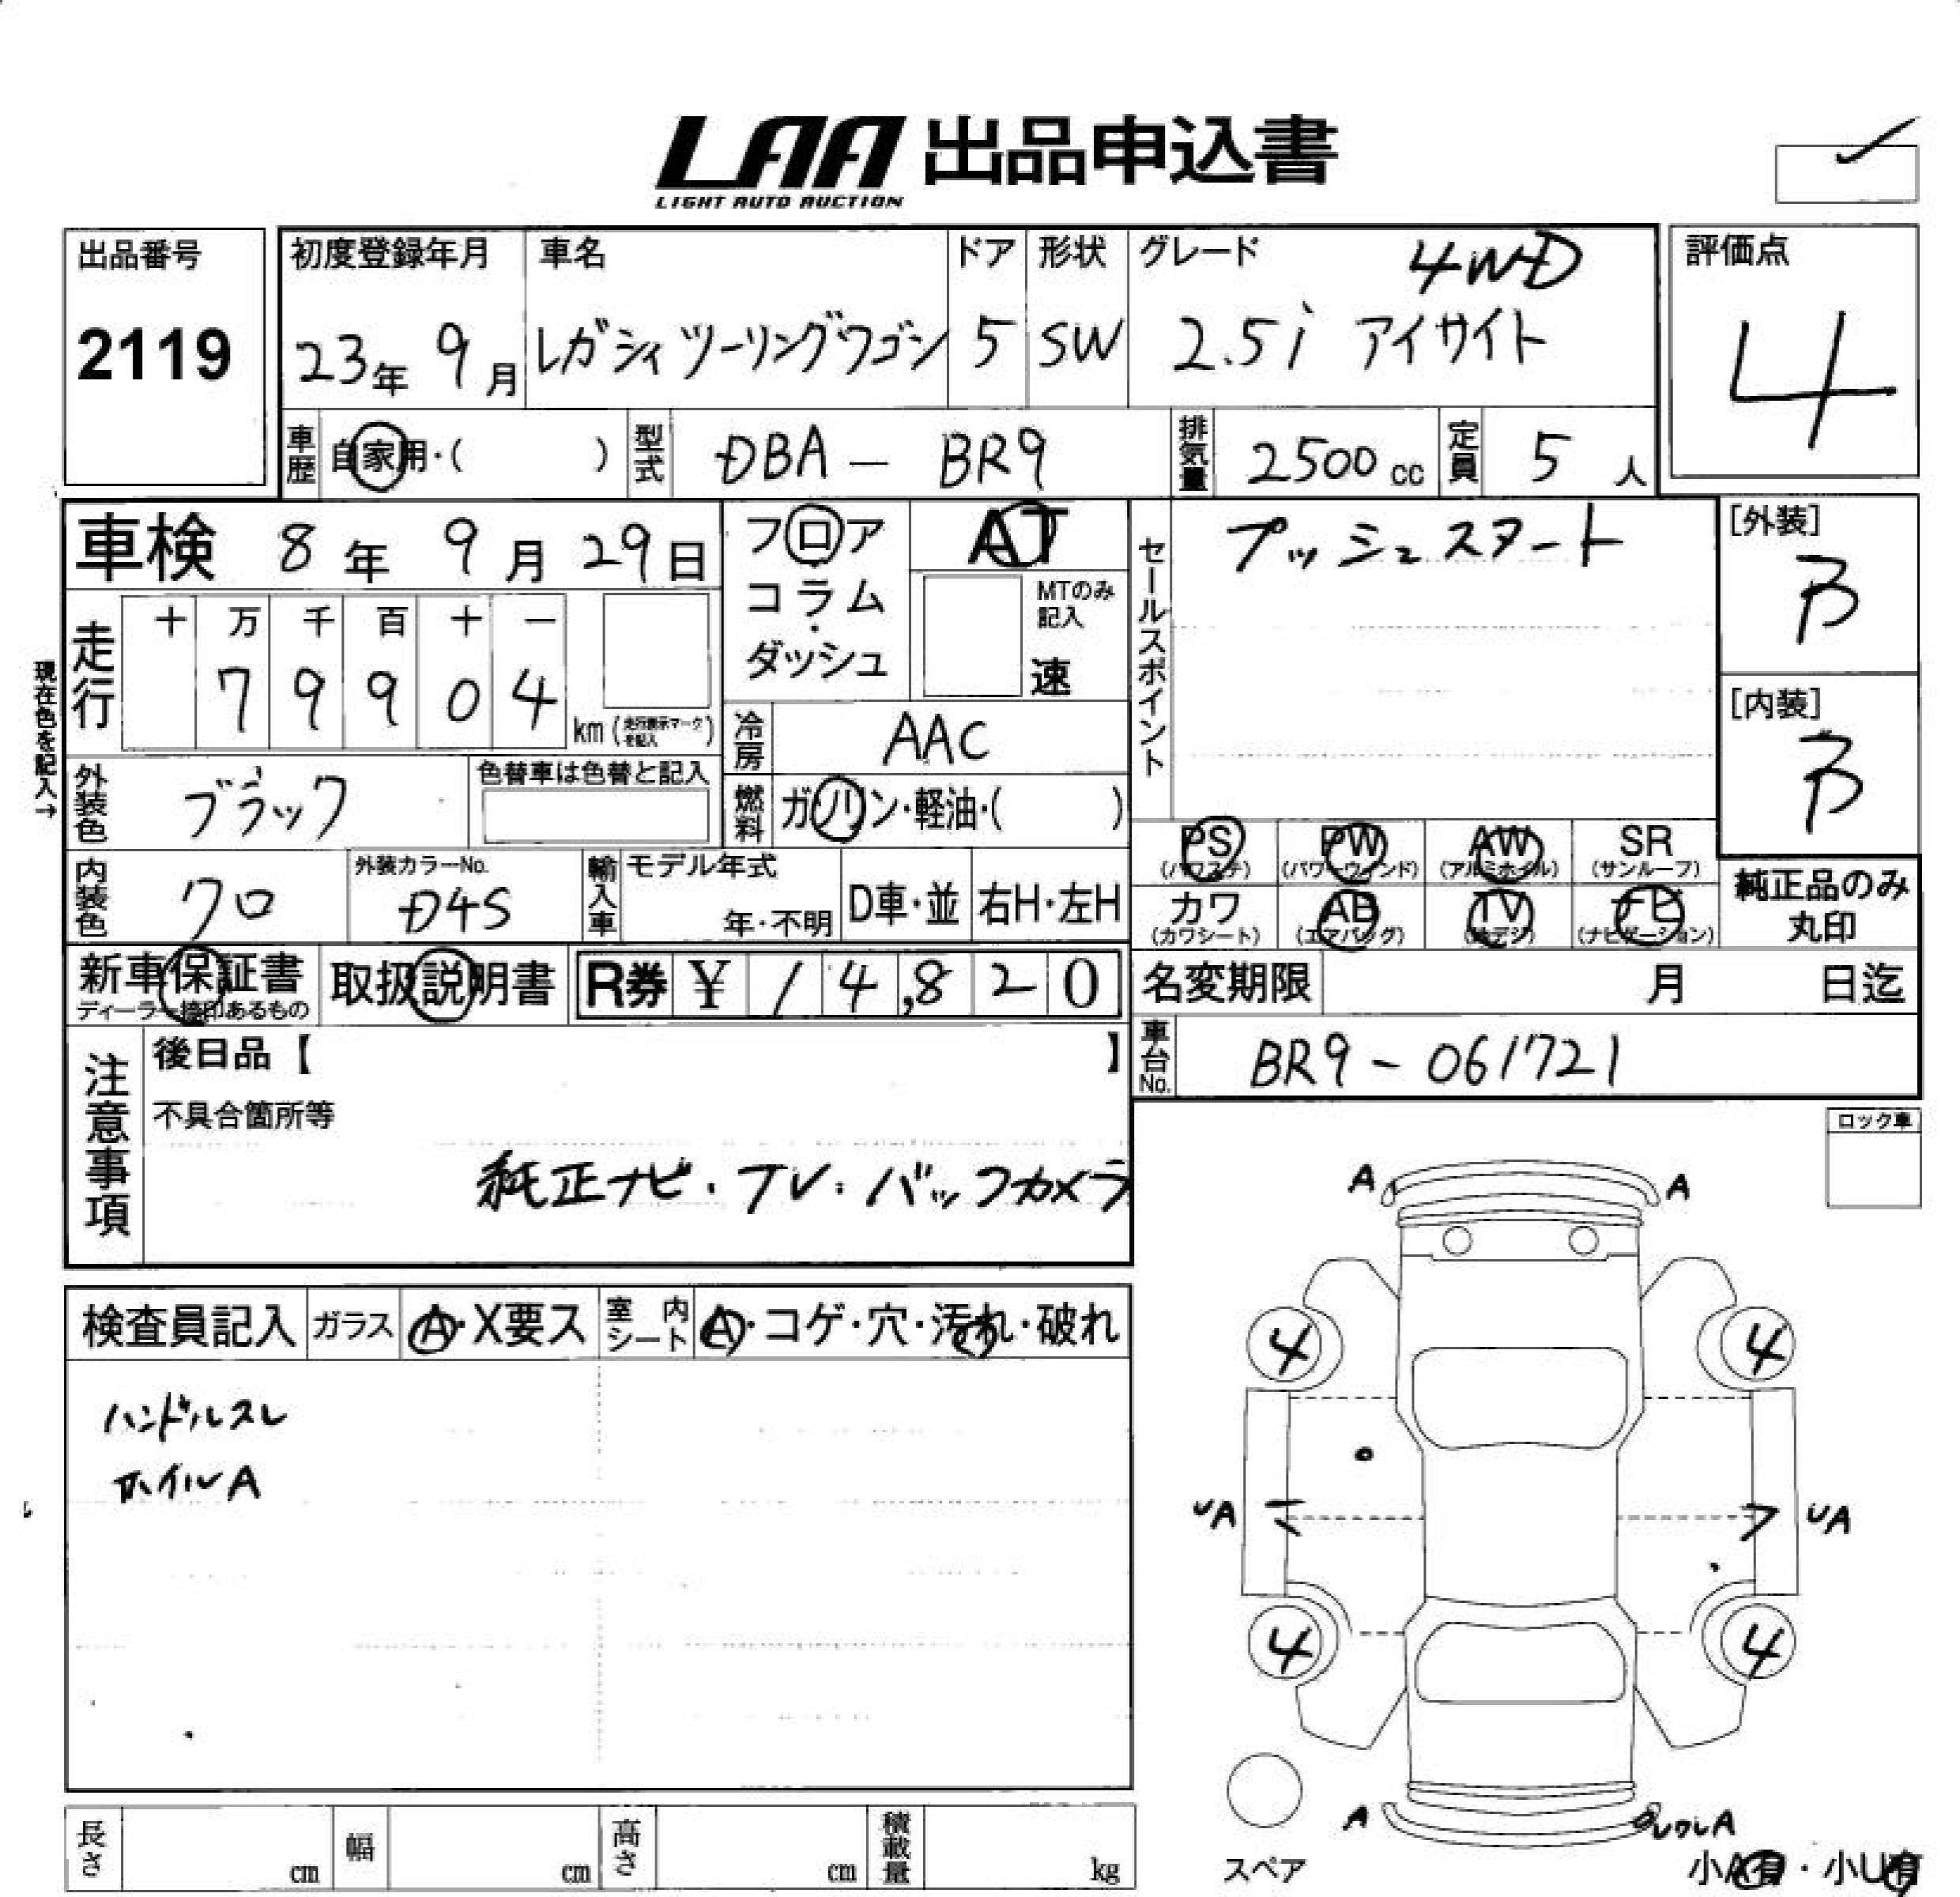 LAA 出品申込書
LIGHT AUTO AUCTION
出品番号
2119
初度登録年月
23年 9月
車名
レガシィ ツーリングワゴン
ドア
5
形状
SW
グレード 4WD
2.5i アイサイト
評価点
4
車歴 自家用・( )
型式 DBA - BR9
排気量 2500 cc
定員 5 人
車検 8年 9月 29日
フロア
・
コラム
・
ダッシュ
AT
MTのみ
記入
速
セールスポイント
プッシュスタート
[外装]
B
[内装]
B
現在色を記入→
走行
十 万 千 百 十 一
7 9 9 0 4
km (走行表示マークを記入)
冷房 AAC
外装色 ブラック
色替車は色替と記入
燃料 ガソリン・軽油・( )
内装色 クロ
外装カラーNo.
D4S
輸入車
モデル年式
年・不明
D車・並
右H・左H
PS
(パワステ)
PW
(パワーウィンド)
AW
(アルミホイル)
SR
(サンルーフ)
カワ
(カワシート)
AB
(エアバッグ)
TV
(地デジ)
ナビ
(ナビゲーション)
純正品のみ
丸印
新車保証書
ディーラー捺印あるもの
取扱説明書
R券 ¥ 14,820
名変期限 月 日迄
車台No. BR9-061721
注意事項
後日品【 】
不具合箇所等
純正ナビ・TV・バックカメラ
ロック車
検査員記入
ガラス A・X要ス
室内シート A・コゲ・穴・汚れ・破れ
ハンドルスレ
ホイルA
A A
4 4
UA UA
4 4
A
スペア
小A有・小U有
長さ cm
幅 cm
高さ cm
積載量 kg